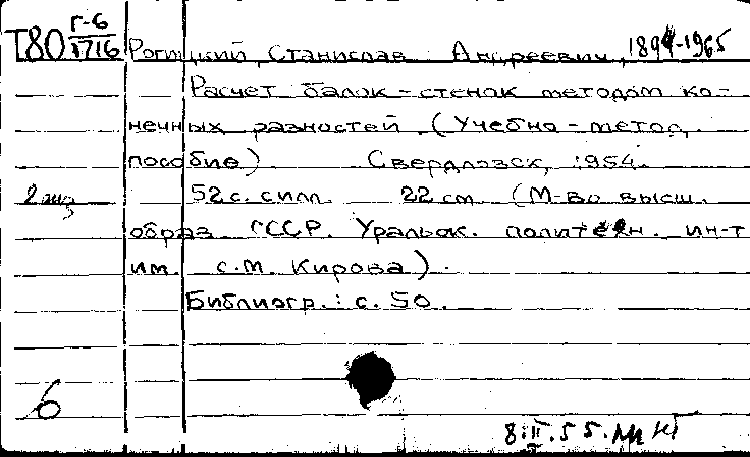 Т80 Г-6/1716 Рогицкий, Станислав Андреевич, 1894-1965
Расчет балок-стенок методом ко-
нечных разностей. (Учебно-метод.
пособие) Свердловск, 1954.
2 экз
52 с. с илл. 22 см. (М-во высш.
образ. СССР. Уральск. политехн. ин-т
им. С.М. Кирова).
Библиогр.: с. 50.
6
8.II.55.